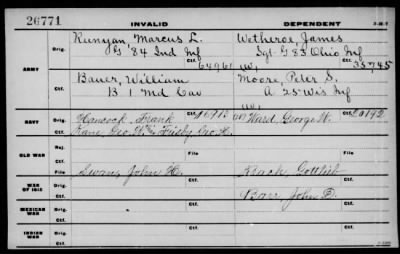 26771 INVALID DEPENDENT 3-M-7
ARMY
Orig. Runyan, Marcus L. Wetheroe, James
G '84 Ind Inf Sgt G 83 Ohio Inf
Ctf. 64961 W, 35745
Orig. Bauer, William Moore, Peter S.
B 1 Md Cav A 25 Wis Inf
Ctf. W,
NAVY Orig. Hancock, Frank Ctf. Ward, George W. Ctf. 20192
Ctf. Kane, Geo. W. Frisby, Geo. H.
OLD WAR Rej. File File
Ctf. Swan, John H. Rock, Gottlieb
WAR OF 1812 Orig. Barr, John D.
Ctf.
MEXICAN WAR Orig.
Ctf.
INDIAN WAR Orig.
Ctf.